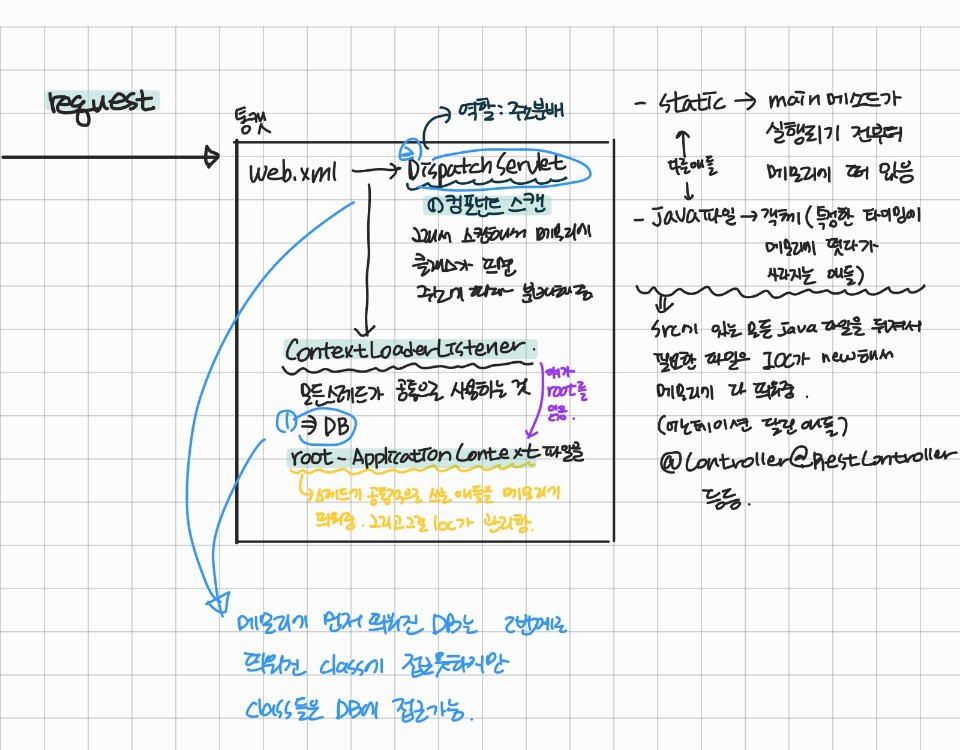 request
톰캣
역할 : 주소분배
web.xml → ② DispatchServlet
① 컴포넌트 스캔
그래서 스캔해서 메모리에
클래스가 뜨면
주소에 따라 분배해줌
ContextLoaderListener.
모든스레드가 공통으로 사용하는 것
① ⇒ DB
얘가
root를
읽음.
root-ApplicationContext 파일을
스레드가 공통적으로 쓰는 애들을 메모리에
띄워줌. 그리고 그걸 Ioc가 관리함.
메모리에 먼저 띄워진 DB는 2번째로
띄워진 class에 접근못하지만
class들은 DB에 접근가능.
- static → main 메소드가
실행되기 전부터
메모리에 떠 있음
다른애들
- java파일 → 객체 (특정한 타이밍에
메모리에 떴다가
사라지는 애들)
src에 있는 모든 java 파일을 뒤져서
필요한 파일을 IOC가 new해서
메모리에 다 띄워줌.
(어노테이션 달린 애들)
@Controller @RestController
등등.